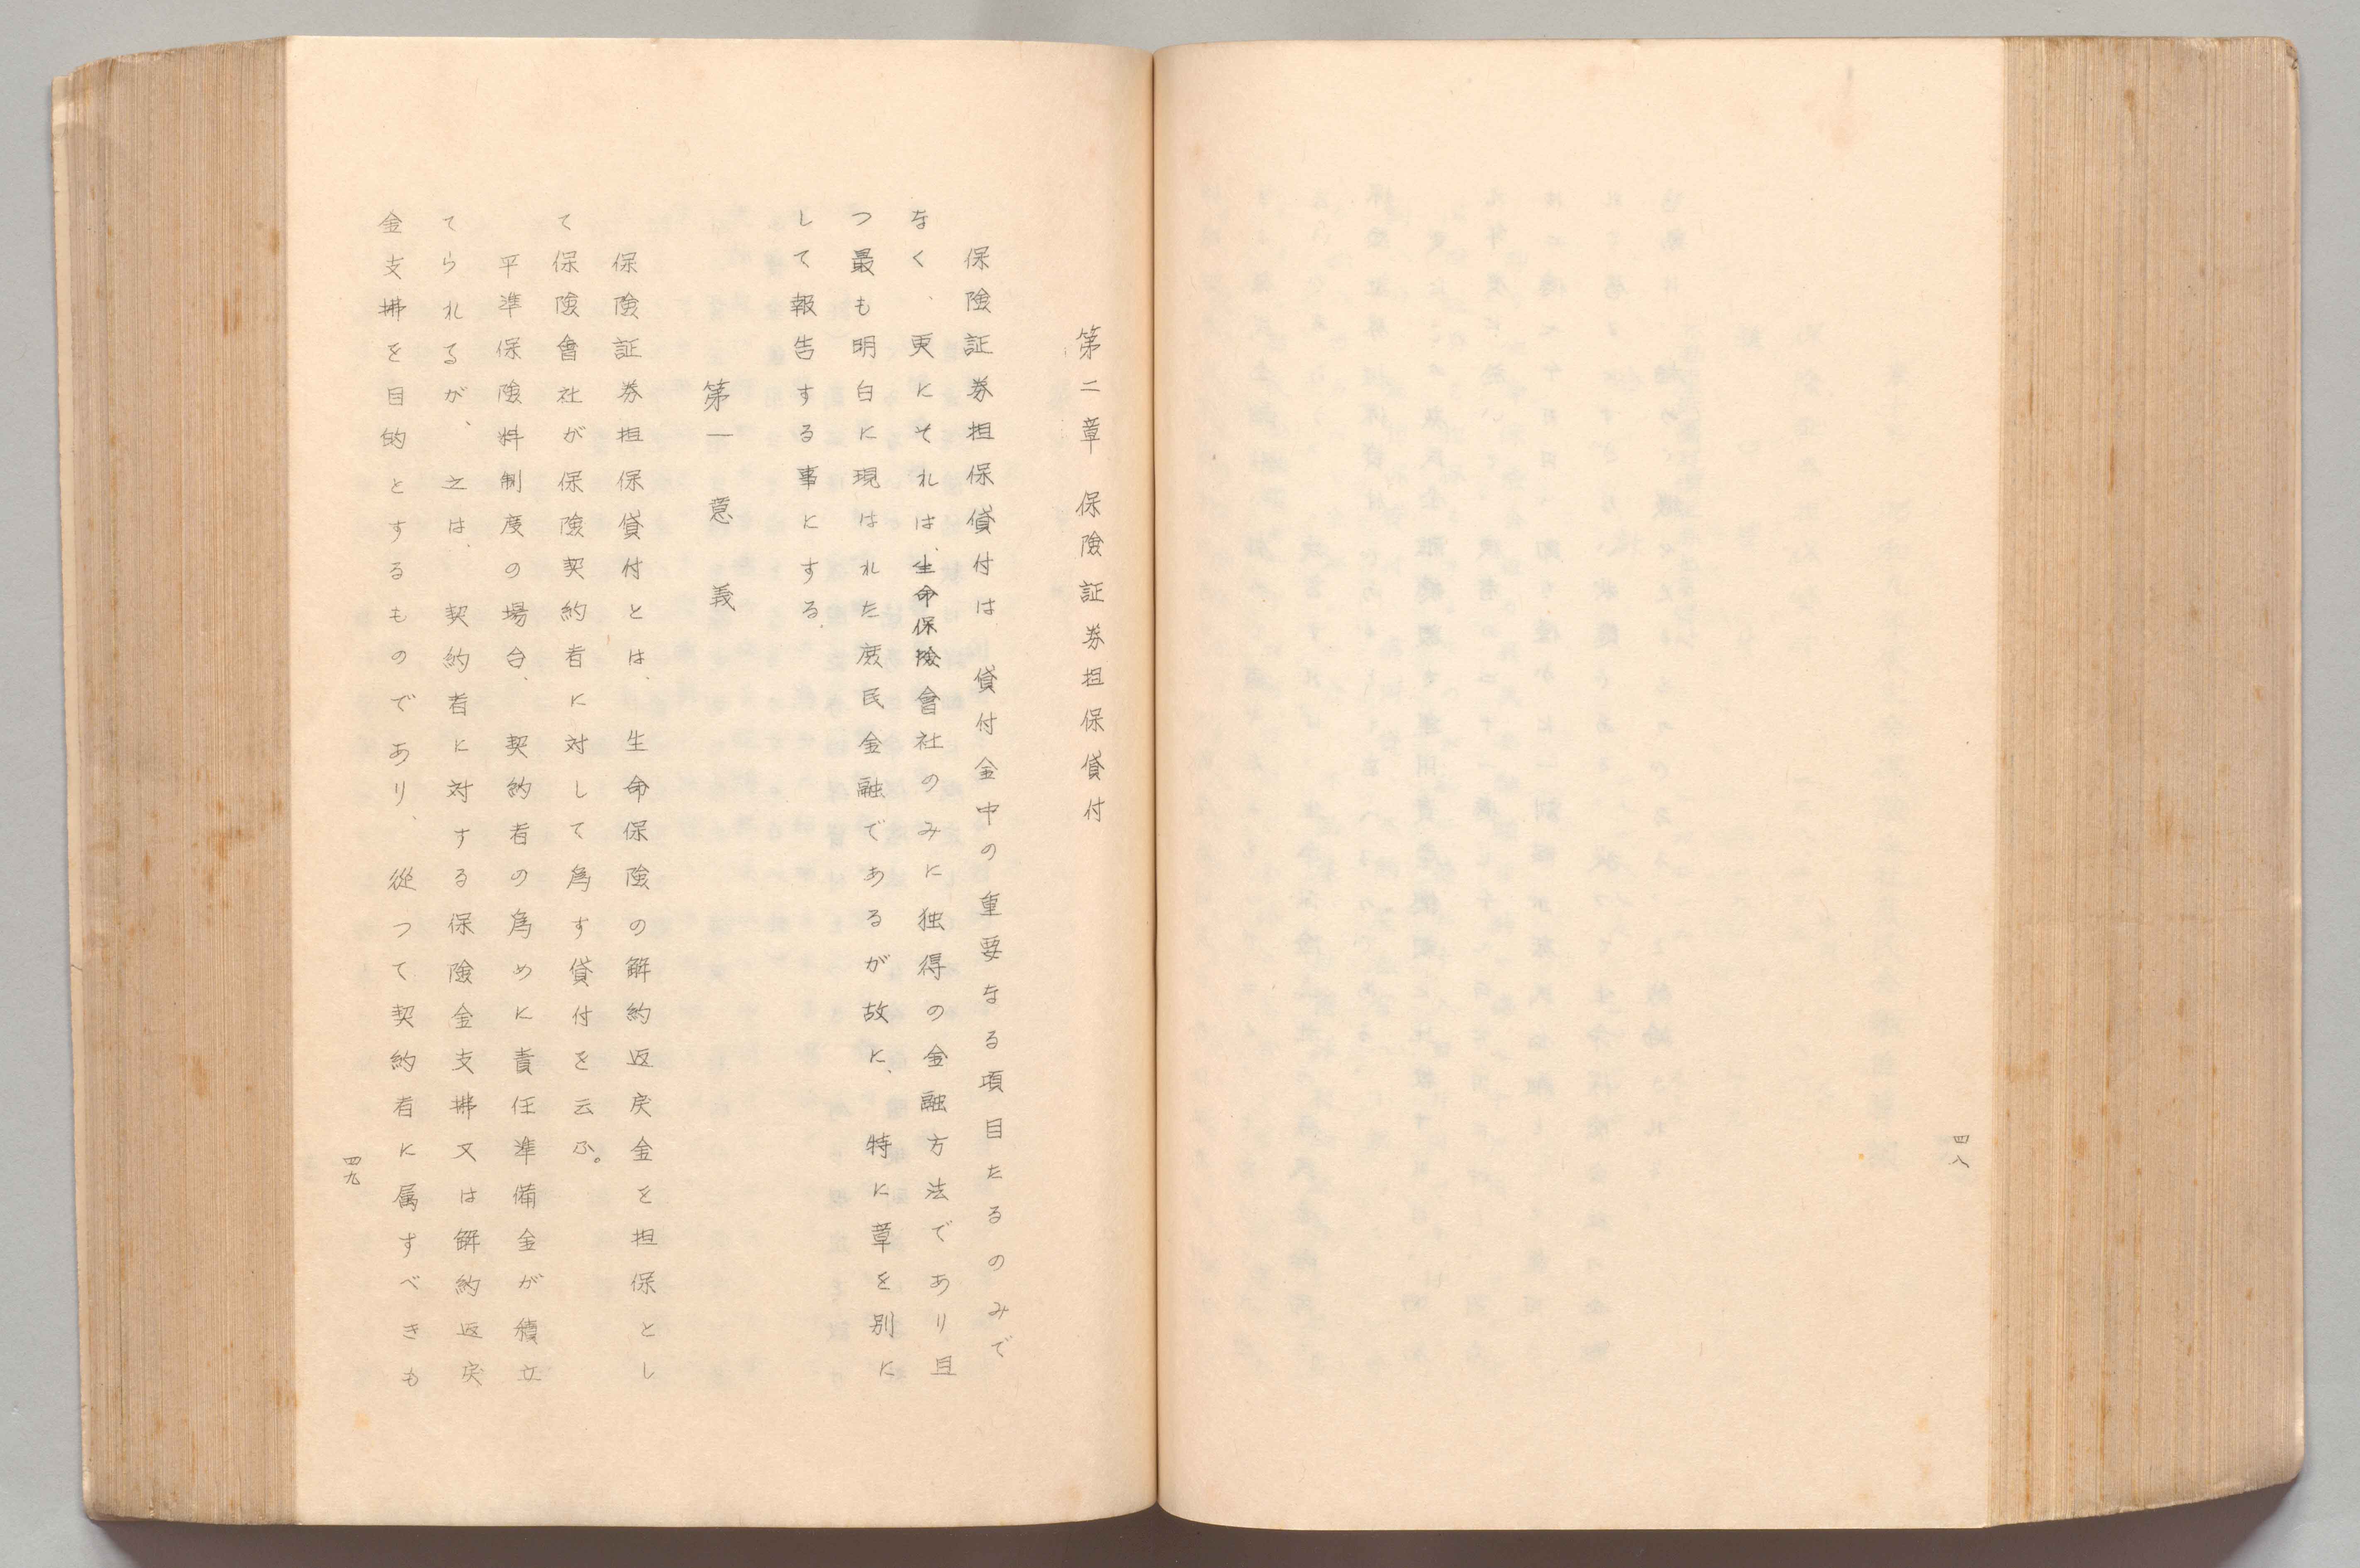 四八
第二章　保険証券担保貸付
保険証券担保貸付は　貸付金中の重要なる項目たるのみで
なく、更にそれは、生命保険會社のみに独得の金融方法であり且
つ最も明白に現はれた庶民金融であるが故に、特に章を別に
して報告する事にする.
第一　意　義
保険証券担保貸付とは、生命保険の解約返戻金を担保とし
て保険會社が保険契約者に対して為す貸付を云ふ。
平準保険料制度の場合、契約者の為めに責任準備金が積立
てられるが、之は、契約者に対する保険金支拂又は解約返戻
金支拂を目的とするものであり、從つて契約者に属すべきも
四九